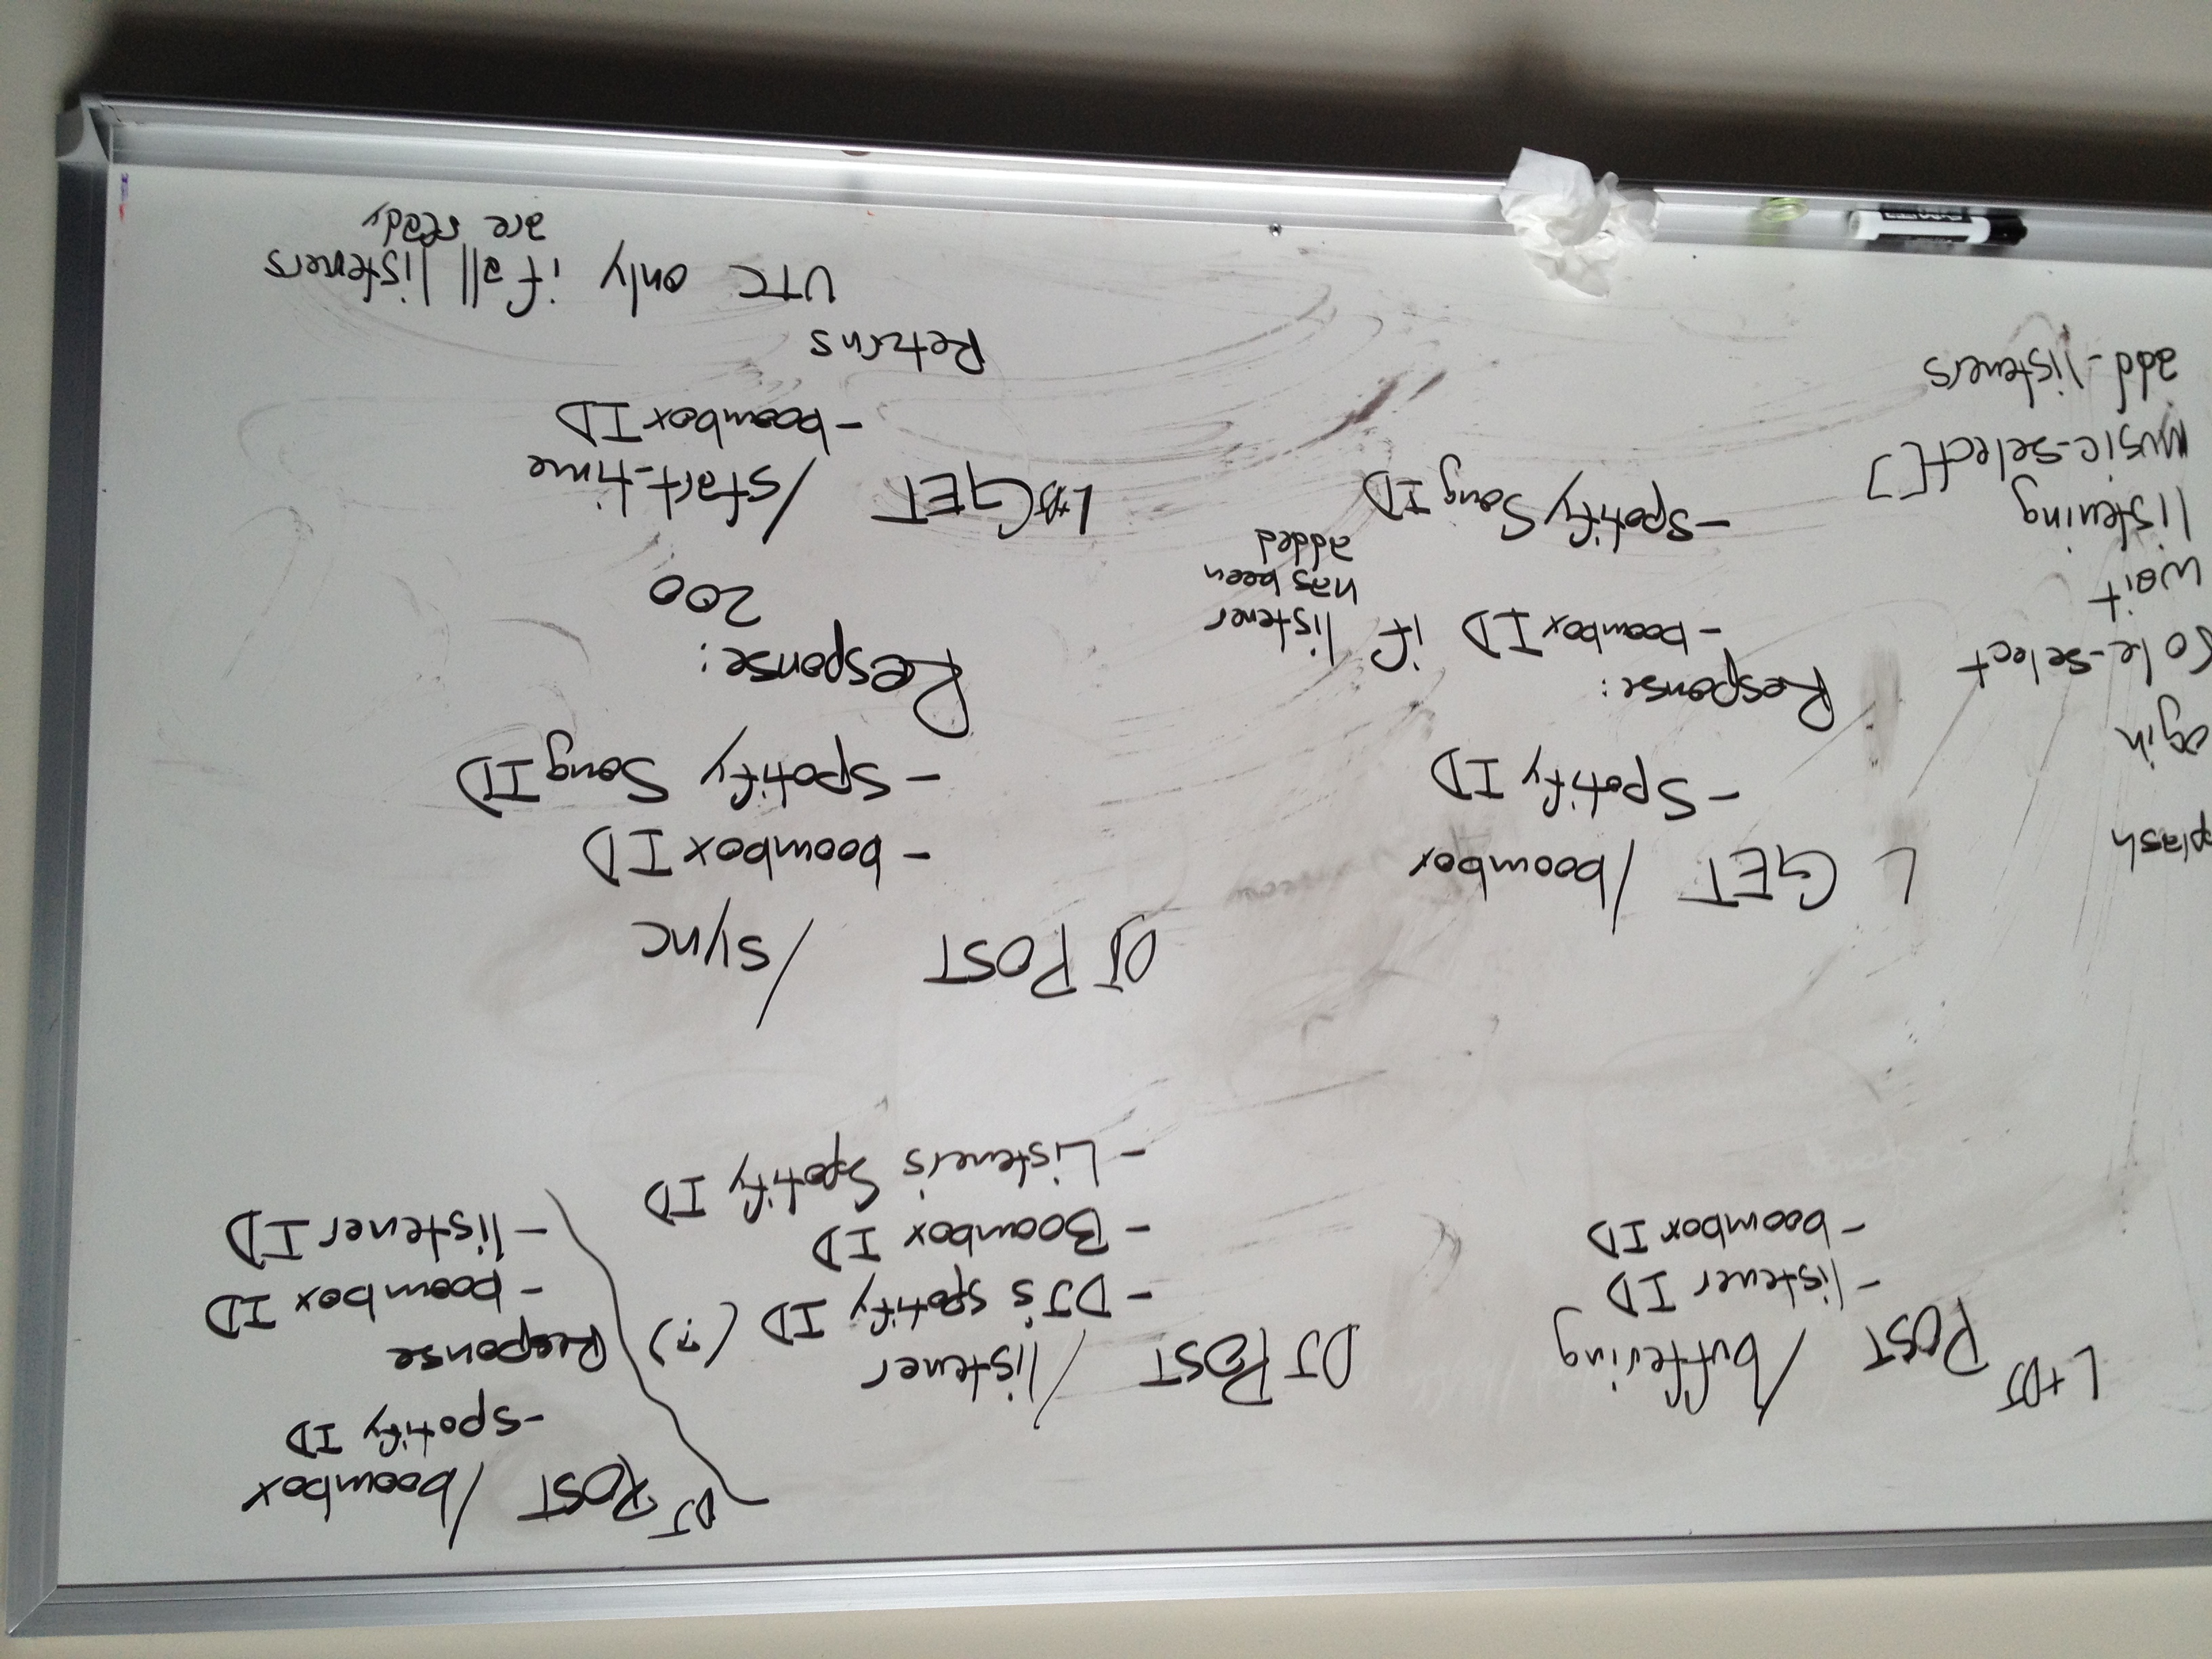 L+DJ POST /buffering
- listener ID
- boombox ID
DJ POST /listener
- DJ's spotify ID (?)
- Boombox ID
- Listener's Spotify ID
DJ POST /boombox
- spotify ID
Response
- boombox ID
- listener ID
plash
ogin
role-select
wait
listening
music-select[]
add_listeners
L GET /boombox
- Spotify ID
Response:
- boombox ID if listener
has been
added
- spotify Song ID
DJ POST /sync
- boombox ID
- spotify Song ID
Response:
200
L+DJ GET /start_time
- boombox ID
Returns
UTC only if all listeners
are ready